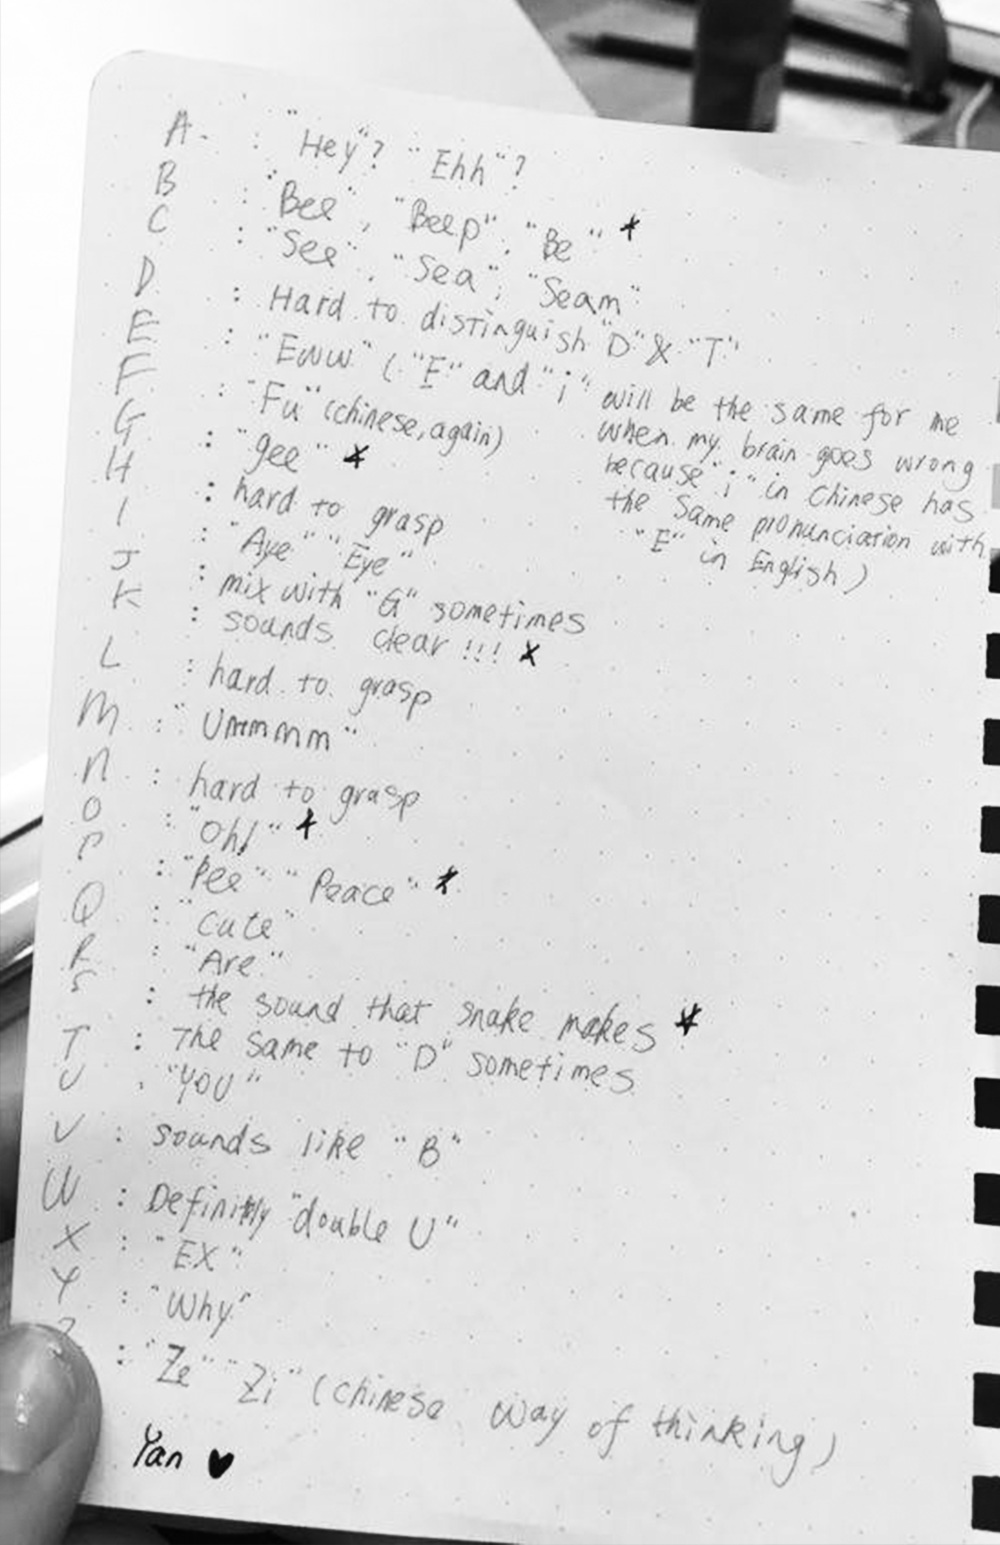 A- : "Hey"? "Ehh"?
B : "Bee", "Beep", "Be" *
C : "See", "Sea", "Seam"
D : Hard to distinguish "D" & "T"
E : "Eww" ( "E" and "i" will be the same for me
when my brain goes wrong
because "i" in Chinese has
the same pronunciation with
"E" in English)
F : "Fu" (chinese, again)
G : "gee" *
H : hard to grasp
I : "Aye" "Eye"
J : mix with "G" sometimes
K : sounds clear !!! *
L : hard to grasp
M : "Ummmm"
N : hard to grasp
O : "Oh!" *
P : "Pee" "Peace" *
Q : "Cute"
R : "Are"
S : the sound that snake makes *
T : The same to "D" sometimes
U : "YOU"
V : sounds like "B"
W : Definitly "double U"
X : "EX"
Y : "Why"
Z : "Ze" "Zi" (chinese way of thinking)
Yan ♥